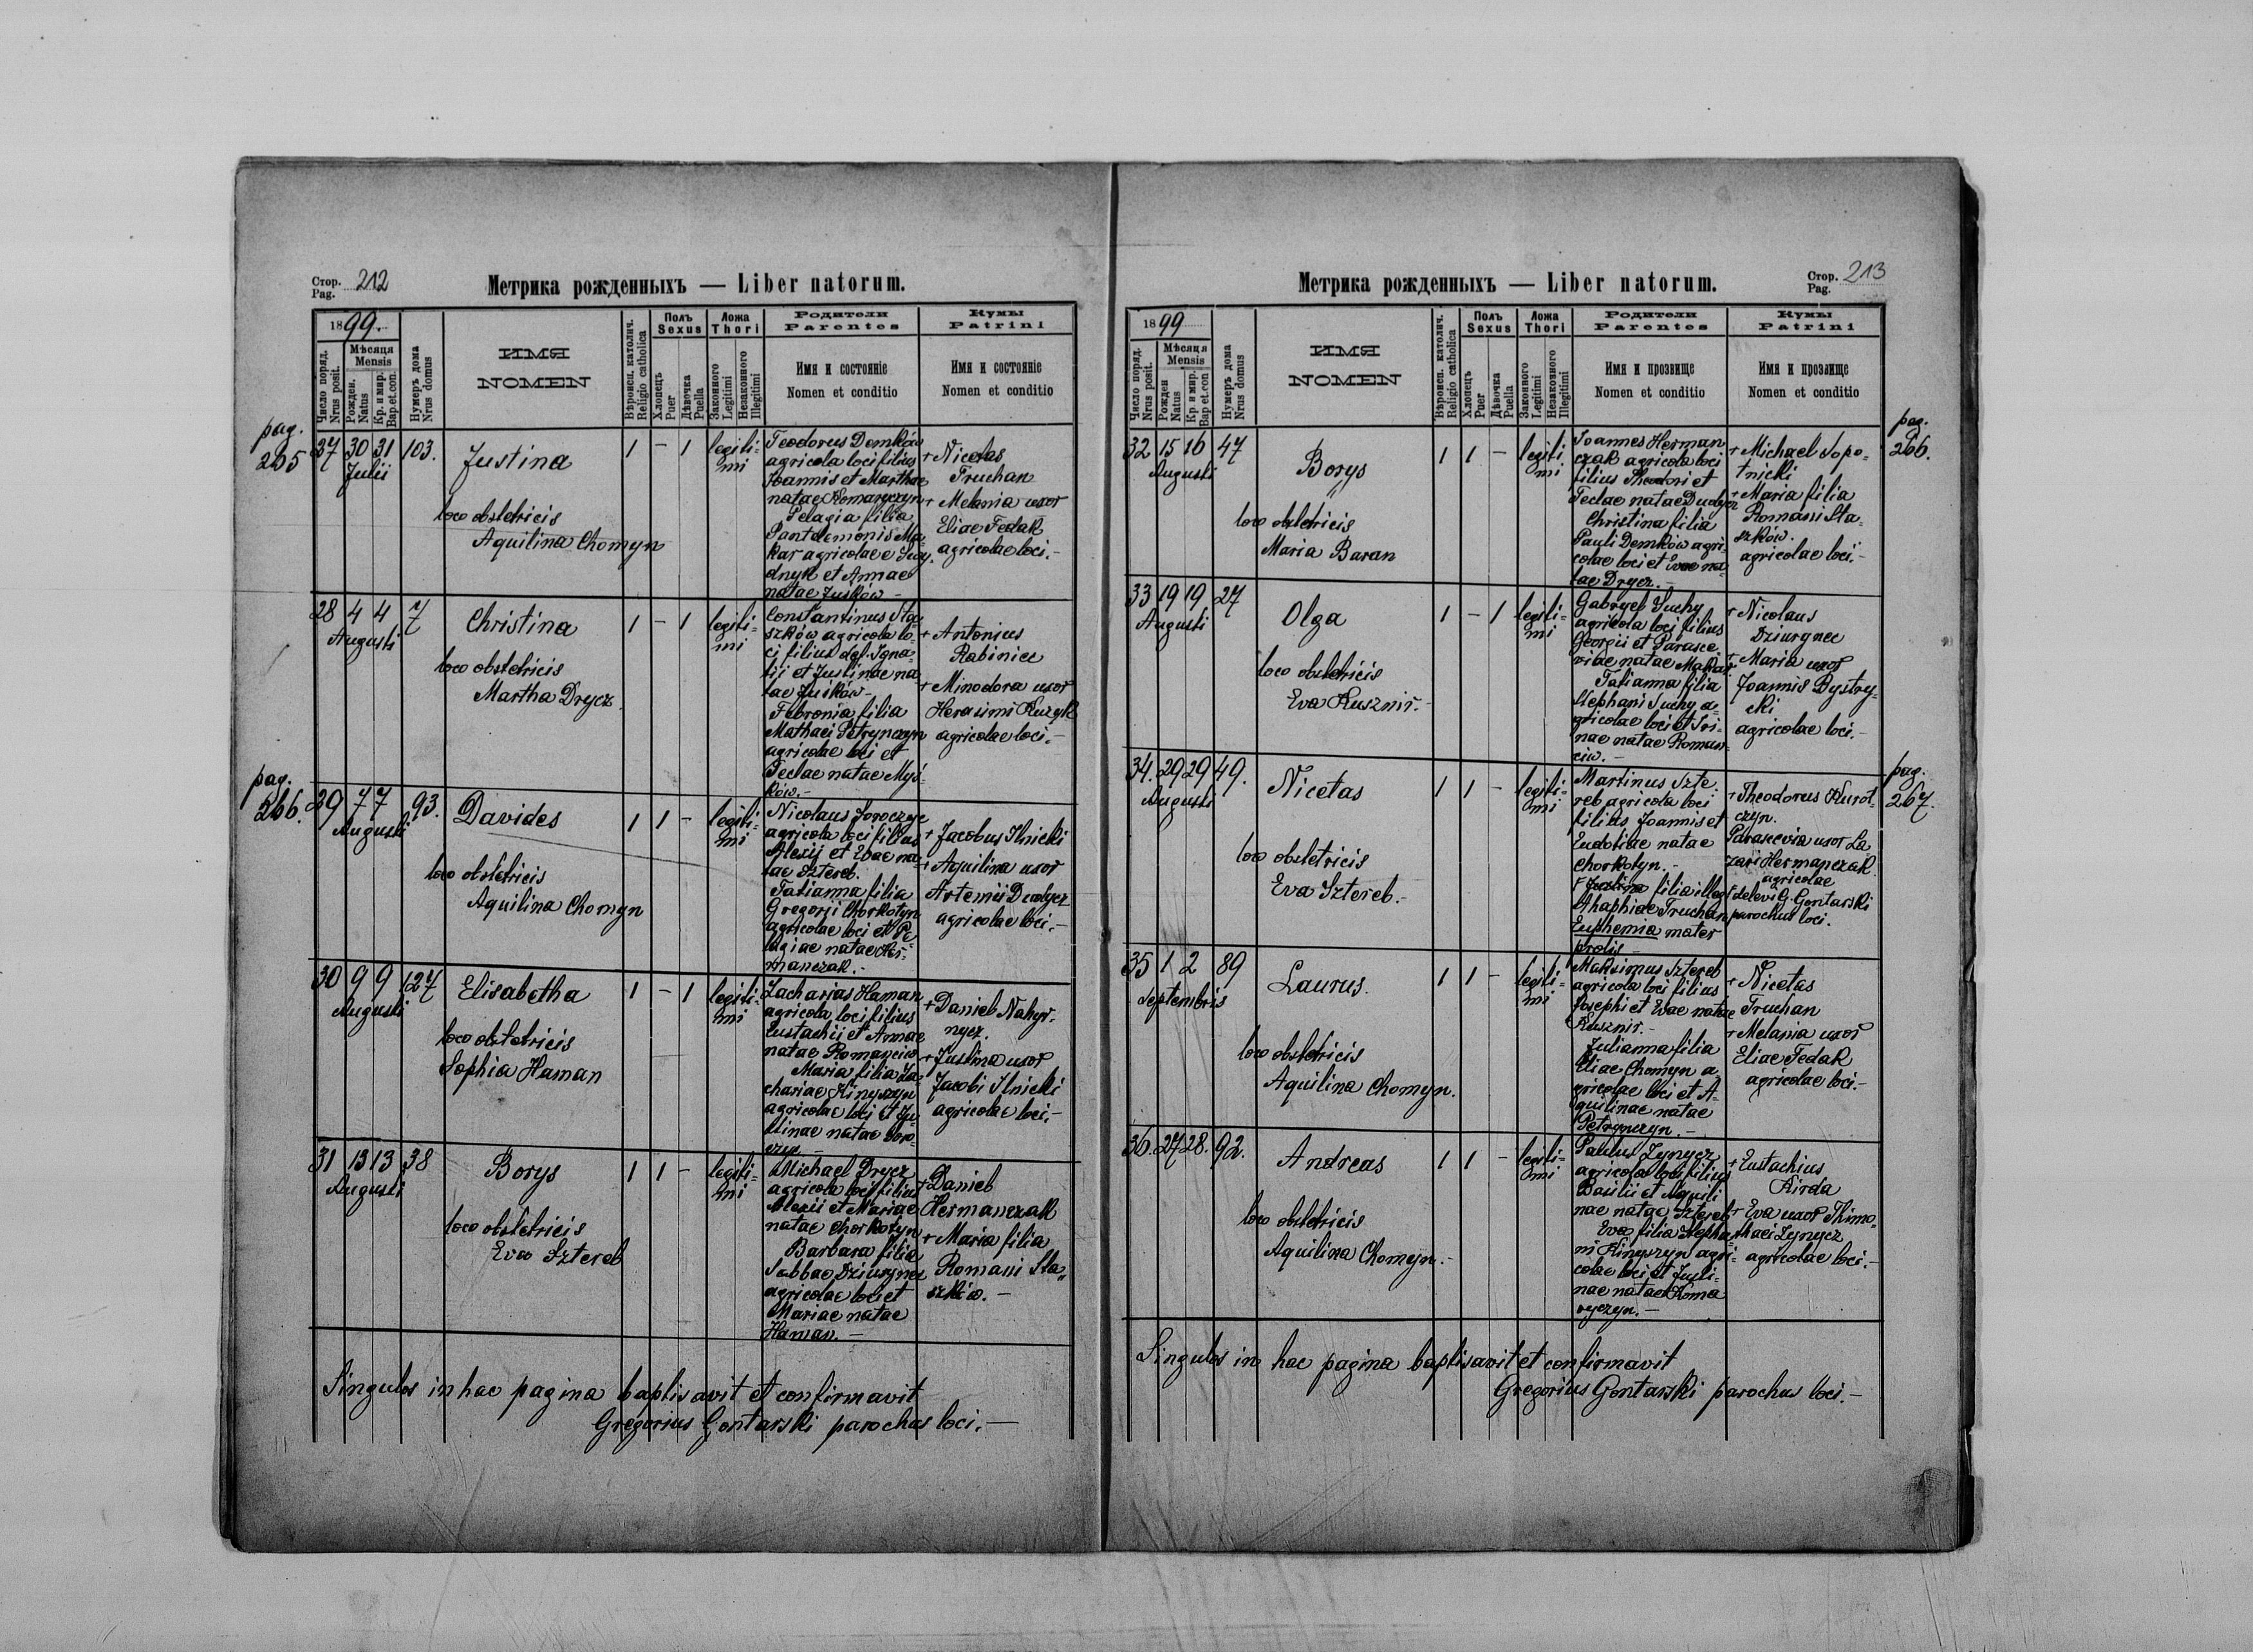 Стор. 212
Pag.
Метрика рожденныхъ — Liber natorum.
1899.
Число поряд.
Nrus posit.
Мѣсяця
Mensis
Рожден.
Natus
Кр. и мир.
Bap. et. con.
Нумеръ дома
Nrus domus
ИМЯ
NOMEN
Вѣроисп. католич.
Religio catholica
Полъ
Sexus
Хлопецъ
Puer
Дѣвочка
Puella
Ложа
Thori
Законного
Legitimi
Незаконного
Illegitimi
Родители
Parentes
Имя и состояніе
Nomen et conditio
Кумы
Patrini
Имя и состояніе
Nomen et conditio
pag.
265
27 30 31 103.
Julii
Justina
loco obstetricis
Aquilina Chomyn
1 – 1
legiti-
mi
Teodorus Demków
agricola loci filius
Joannis et Marthae
natae Komaryczyn
Pelagia filia
Pantalemonis Ma-
kar agricolae e
dnyk et Annae
natae Juśków –
+ Nicolas
Truchan
+ Melania uxor
Eliae Fedak
agricolae loci. –
28 4 4 7
Augusti
Christina
loco obstetricis
Martha Drycz
1 – 1
legiti-
mi
Constantinus Sta-
szków agricola lo-
ci filius dgl. Igna-
tii et Justinae na-
tae Juśków –
Febronia filia
Mathaei Petrynczyn
agricolae loci et
Teclae natae Myś-
ków. –
+ Antonius
Rabiniec
+ Minodora uxor
Herasimi Kuzyk
agricolae loci. –
pag.
266.
29 7 7 93.
Augusti
Davides
loco obstetricis
Aquilina Chomyn
1 1 –
legiti-
mi
Nicolaus Soroczyc
agricola loci filius
Alexij et Evae na-
tae Sztereb.
Tatianna filia
Gregorji Chorkotyn
agricolae loci et Pe-
lagiae natae Her-
manczak. –
+ Jacobus Ilnicki
+ Aquilina uxor
Artemii Dudycz
agricolae loci. –
30 9 9 127
Augusti
Elisabetha
loco obstetricis
Sophia Haman
1 – 1
legiti-
mi
Zacharias Haman
agricola loci filius
Eustachii et Annae
natae Romanciw
Maria filia Za-
chariae Kinyszyn
agricolae loci et Ju-
stinae natae Soro-
czyc –
+ Daniel Nahyr-
nycz.
+ Justina uxor
Jacobi Ilnicki
agricolae loci. –
31 13 13 38
Augusti
Borys
loco obstetricis
Eva Sztereb
1 1 –
legiti-
mi
Michael Drycz
agricola loci filius
Alexii et Mariae
natae Chorkotyn
Barbara filia
Sabbae Dziurynec
agricolae loci et
Mariae natae
Haman. –
+ Daniel
Hermanczak
+ Maria filia
Romani Sta-
szków. –
Singulos in hac pagina baptisavit et confirmavit
Gregorius Gontarski parochus loci. –
Метрика рожденныхъ — Liber natorum.
Стор. 213
Pag.
1899
Число поряд.
Nrus posit.
Мѣсяця
Mensis
Рожден
Natus
Кр. и мир.
Bap et.con
Нумеръ дома
Nrus domus
ИМЯ
NOMEN
Вѣроисп. католич.
Religio catholica
Полъ
Sexus
Хлопецъ
Puer
Дѣвочка
Puella
Ложа
Thori
Законного
Legitimi
Незаконного
Illegitimi
Родители
Parentes
Имя и прозвище
Nomen et conditio
Кумы
Patrini
Имя и прозвище
Nomen et conditio
pag.
266.
32 15 16 47
Augusti
Borys
loco obstetricis
Maria Baran
1 1 –
legiti
mi
Joannes Herman
czak agricola loci
filius Theodori et
Teclae natae Dudycz
Christina filia
Pauli Demków agri-
colae loci et Evae na-
tae Drycz. –
+ Michael Sopo-
tnicki
+ Maria filia
Romani Sta-
szków.
agricolae loci. –
33 19 19 27
Augusti
Olga
loco obstetricis
Eva Kusznir. –
1 – 1
legiti-
mi
Gabryel Suchy
agricola loci filius
Georgii et Parasce
viae natae Makar
Tatianna filia
Stephani Suchy a-
gricolae loci et Iri-
nae natae Roman-
ciw. –
+ Nicolaus
Dziurynec
+ Maria uxor
Joannis Bystry-
cki
agricolae loci. –
pag.
267.
34. 29 29 49.
Augusti
Nicetas
loco obstetricis
Eva Sztereb. –
1 1 –
legiti-
mi
Martinus Szte-
reb agricola loci
filius Joannis et
Eudoliae natae
Chorkotyn. –
Justina filia illeg.
Ahaphiae Truchan
Euphemia mater
prolis –
+ Theodorus Kurot-
czyn.
Parascevia uxor La-
zari Hermanczak
agricolae
delevi G. Gontarski
parochus loci.
35 1 2 89
Septembris
Laurus.
loco obstetricis
Aquilina Chomyn.
1 1 –
legiti-
mi
Maksimus Sztereb
agricola loci filius
Josephi et Evae natae
Kusznir. –
Julianna filia
Eliae Chomyn a-
gricolae loci et A-
quilinae natae
Petrynczyn. –
+ Nicetas
Truchan
+ Melania uxor
Eliae Fedak
agricolae loci. –
36. 27 28. 92.
Andreas
loco obstetricis
Aquilina Chomyn. –
1 1 –
legiti-
mi
Paulus Zynycz
agricola loci filius
Basilii et Aquili
nae natae Sztereb
Eva filia Stepha-
ni Kinyszyn agri-
colae loci et Justi-
nae natae Koma
ryczyn. –
+ Eustachius
Kirda
+ Eva uxor Thimo-
thaei Zynycz
agricolae loci. –
Singulos in hac pagina baptisavit et confirmavit
Gregorius Gontarski parochus loci. –